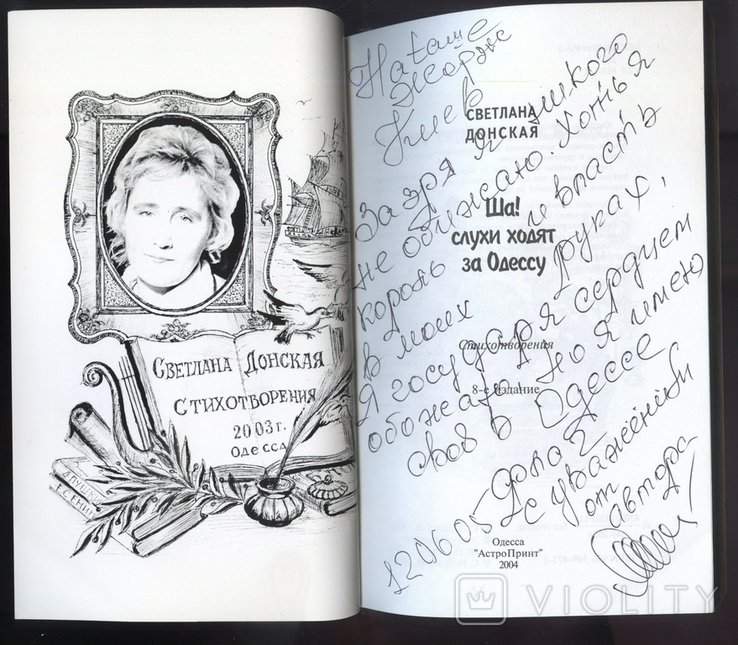 СВЕТЛАНА ДОНСКАЯ
СТИХОТВОРЕНИЯ
2003г.
ОДЕССА
ПУШКИН
ЕСЕНИН
СВЕТЛАНА
ДОНСКАЯ
Ша!
слухи ходят
за Одессу
Стихотворения
8-е издание
Одесса
"АстроПринт"
2004
Наташе
Жордж
Киев
За зря я никого
не обижаю. Хоть я
король и власть
в моих руках,
Я государя сердцем
обожаю, но я имею
своё в Одессе
с уважением
от
автора
120605
VIOLITY